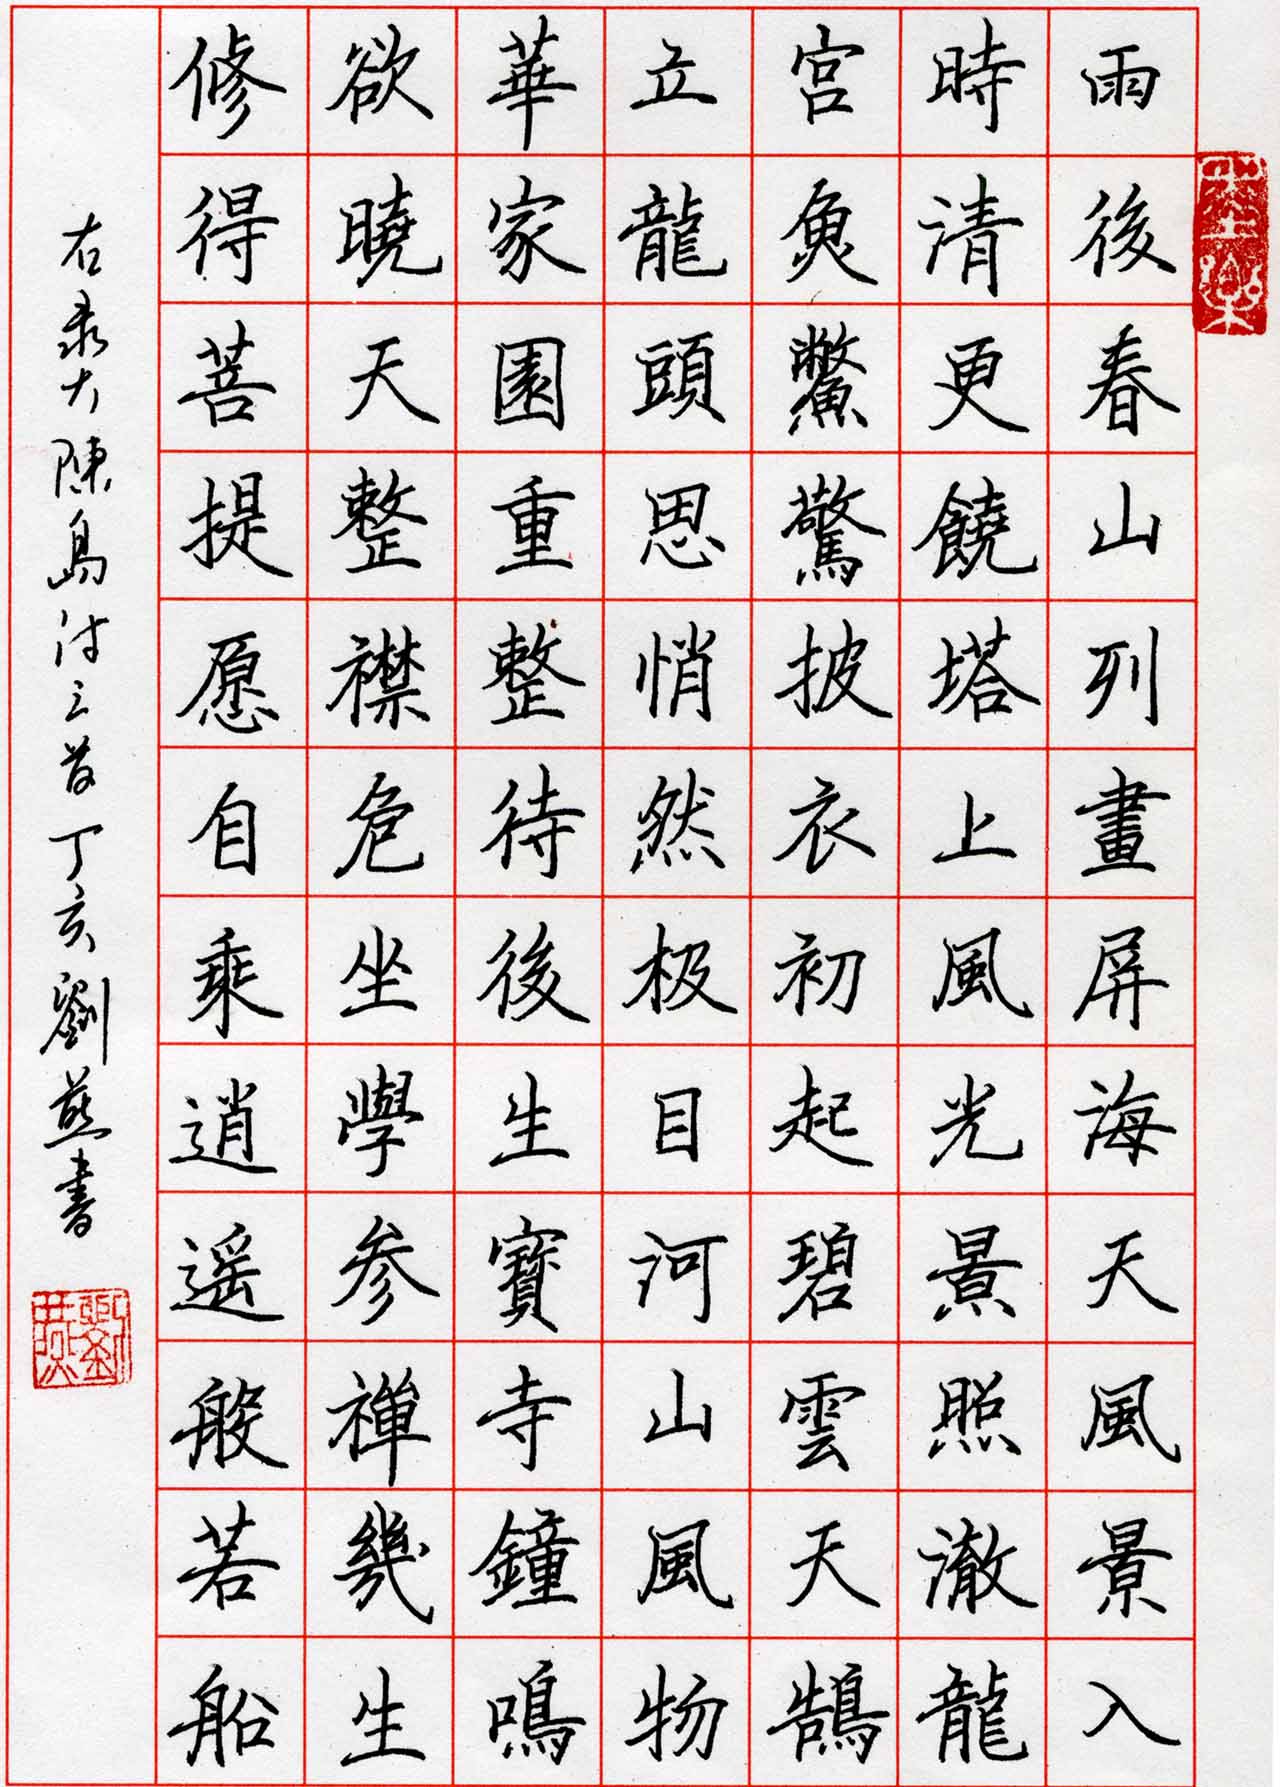 雨後春山列畫屏海天風景入
時清更饒塔上風光景照澈龍
宮魚鱉驚披衣初起碧雲天鵠
立龍頭思悄然极目河山風物
華家園重整待後生寶寺鐘鳴
欲曉天整襟危坐學参禪幾生
修得菩提愿自乘逍遥般若船
右录大陳島诗三首丁亥劉燕書
劉燕